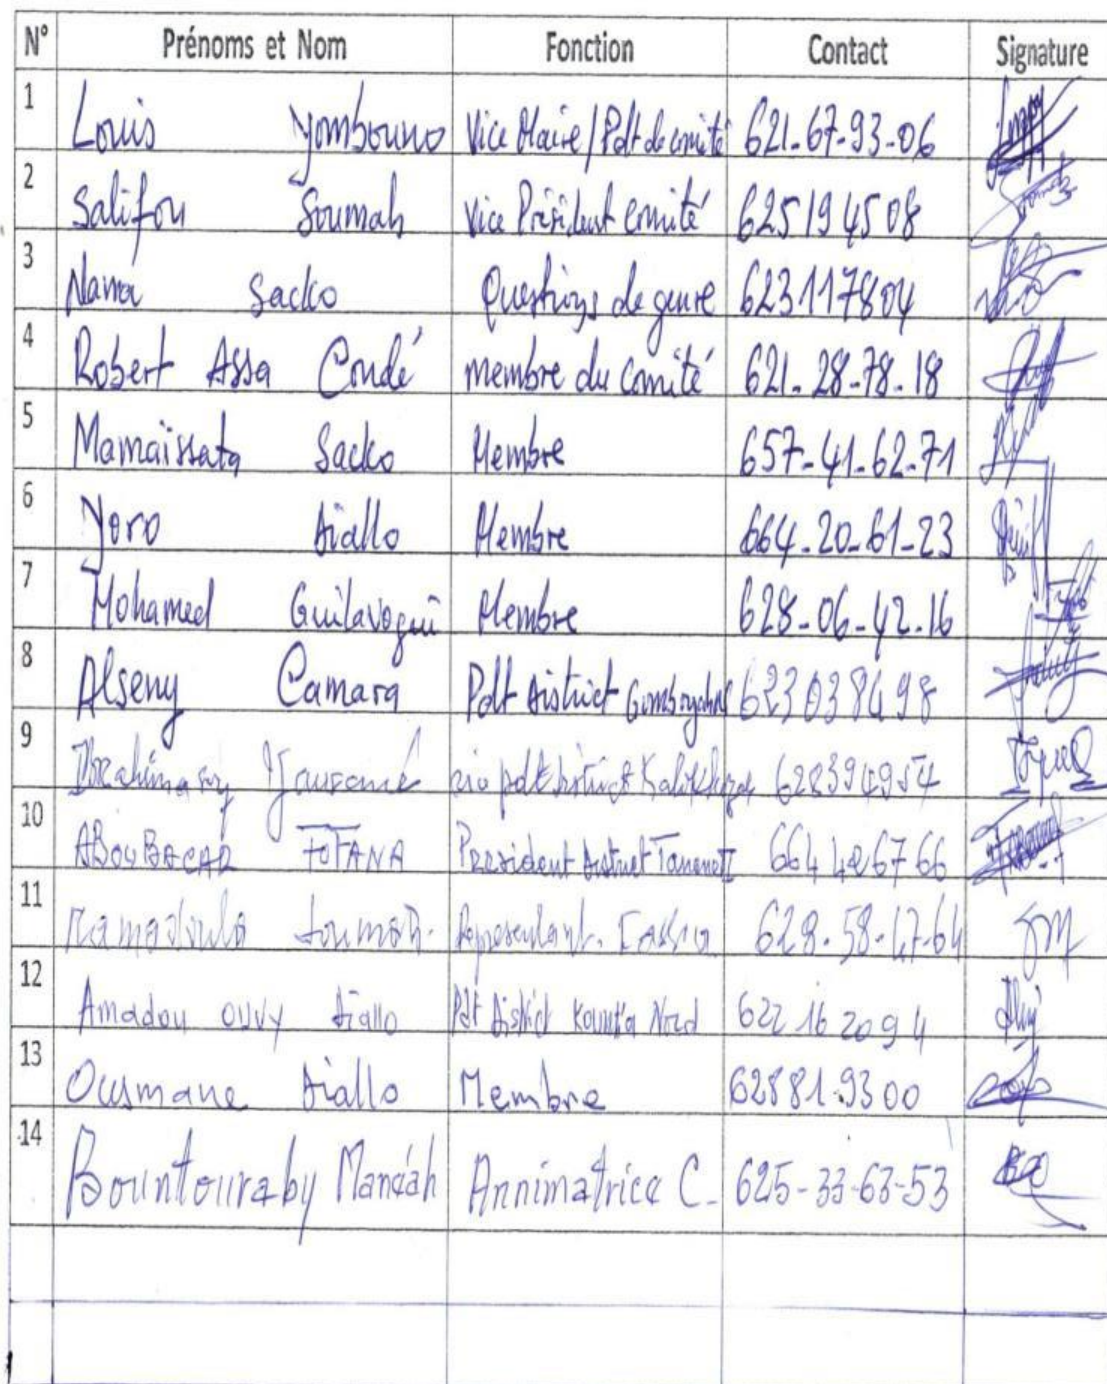 N° Prénoms et Nom Fonction Contact Signature
1 Louis Yombouno Vice Maire/Pdt de comité 621-67-93-06
2 Salifou Soumah Vice Président comité 625194508
3 Nana Sacko Questions de genre 623117804
4 Robert Assa Condé membre du comité 621-28-78-18
5 Mamaïssata Sacko Membre 657-41-62-71
6 Yoro Diallo Membre 664-20-61-23
7 Mohamed Guilavogui Membre 628-06-42-16
8 Alseny Camara Pdt District 623038498
9 Pdt District 628394954
10 ABOUBACAR FOFANA President District 664 67 66
11 Soumah 628-58-47-64
12 Amadou OUVY Diallo Pdt District Kountia Nord 622 16 20 94
13 Ousmane Diallo Membre 62881.9300
14 Bountouraby Manéah Annimatrice C. 625-33-63-53